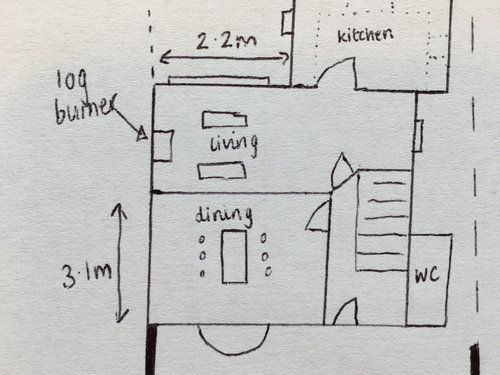 2.2m
kitchen
log
burner
living
dining
3.1m
WC